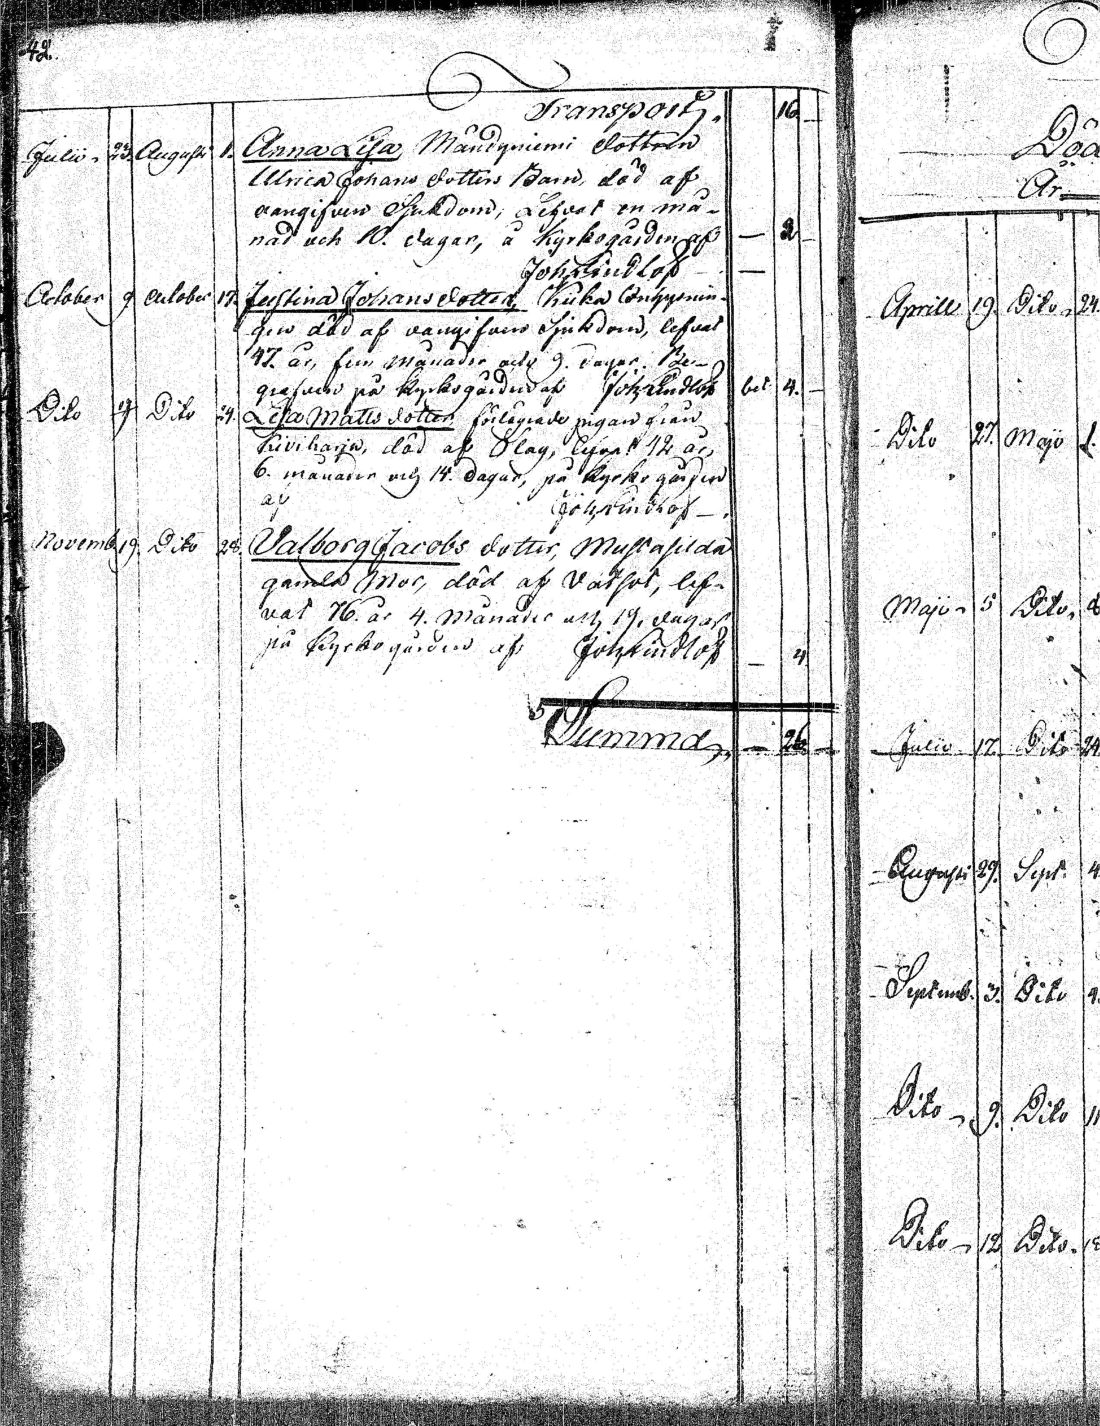 42.
Transport, 16
Julii 23. Augusti 1. Anna Lisa Mändyniemi dottren
Ulrica Johans dotters Barn, död af
oangifven Sjukdom, Lefvat en må-
nad och 10. dagar, å Kyrkogården af — 2 —
Joh Lindlöf — —
October 9 October 17. Justina Johansdotter, Kuka
gen död af oangifven Sjukdom, lefvat
47. år, fem månader och 9. dagar. Be-
grafven på Kyrkogården af Joh Lindlöf bet 4. —
Dito 17 Dito 24. Lisa Matts dotter pigan från
Kiviharju, död af Slag, lefvat 42 år,
6. månader och 14. dagar, på Kyrkogården
af Joh Lindlöf —
Novemb. 19. Dito 28. Valborg Jacobs dotter, Mustasilda
gamla Mor, död af Vatsot, lef-
vat 76. år 4. Månader och 19. dagar
på Kyrkogården af Joh Lindlöf — 4
5 Summa, — 26 —
Död
År
Aprill 19. Dito 24.
Dito 27. Majo 1.
Majo 5 Dito 8
Julii 17. Dito 24
Augusti 29. Sept. 4
Septemb. 3. Dito 4.
Dito 9. Dito 11
Dito 12 Dito 18